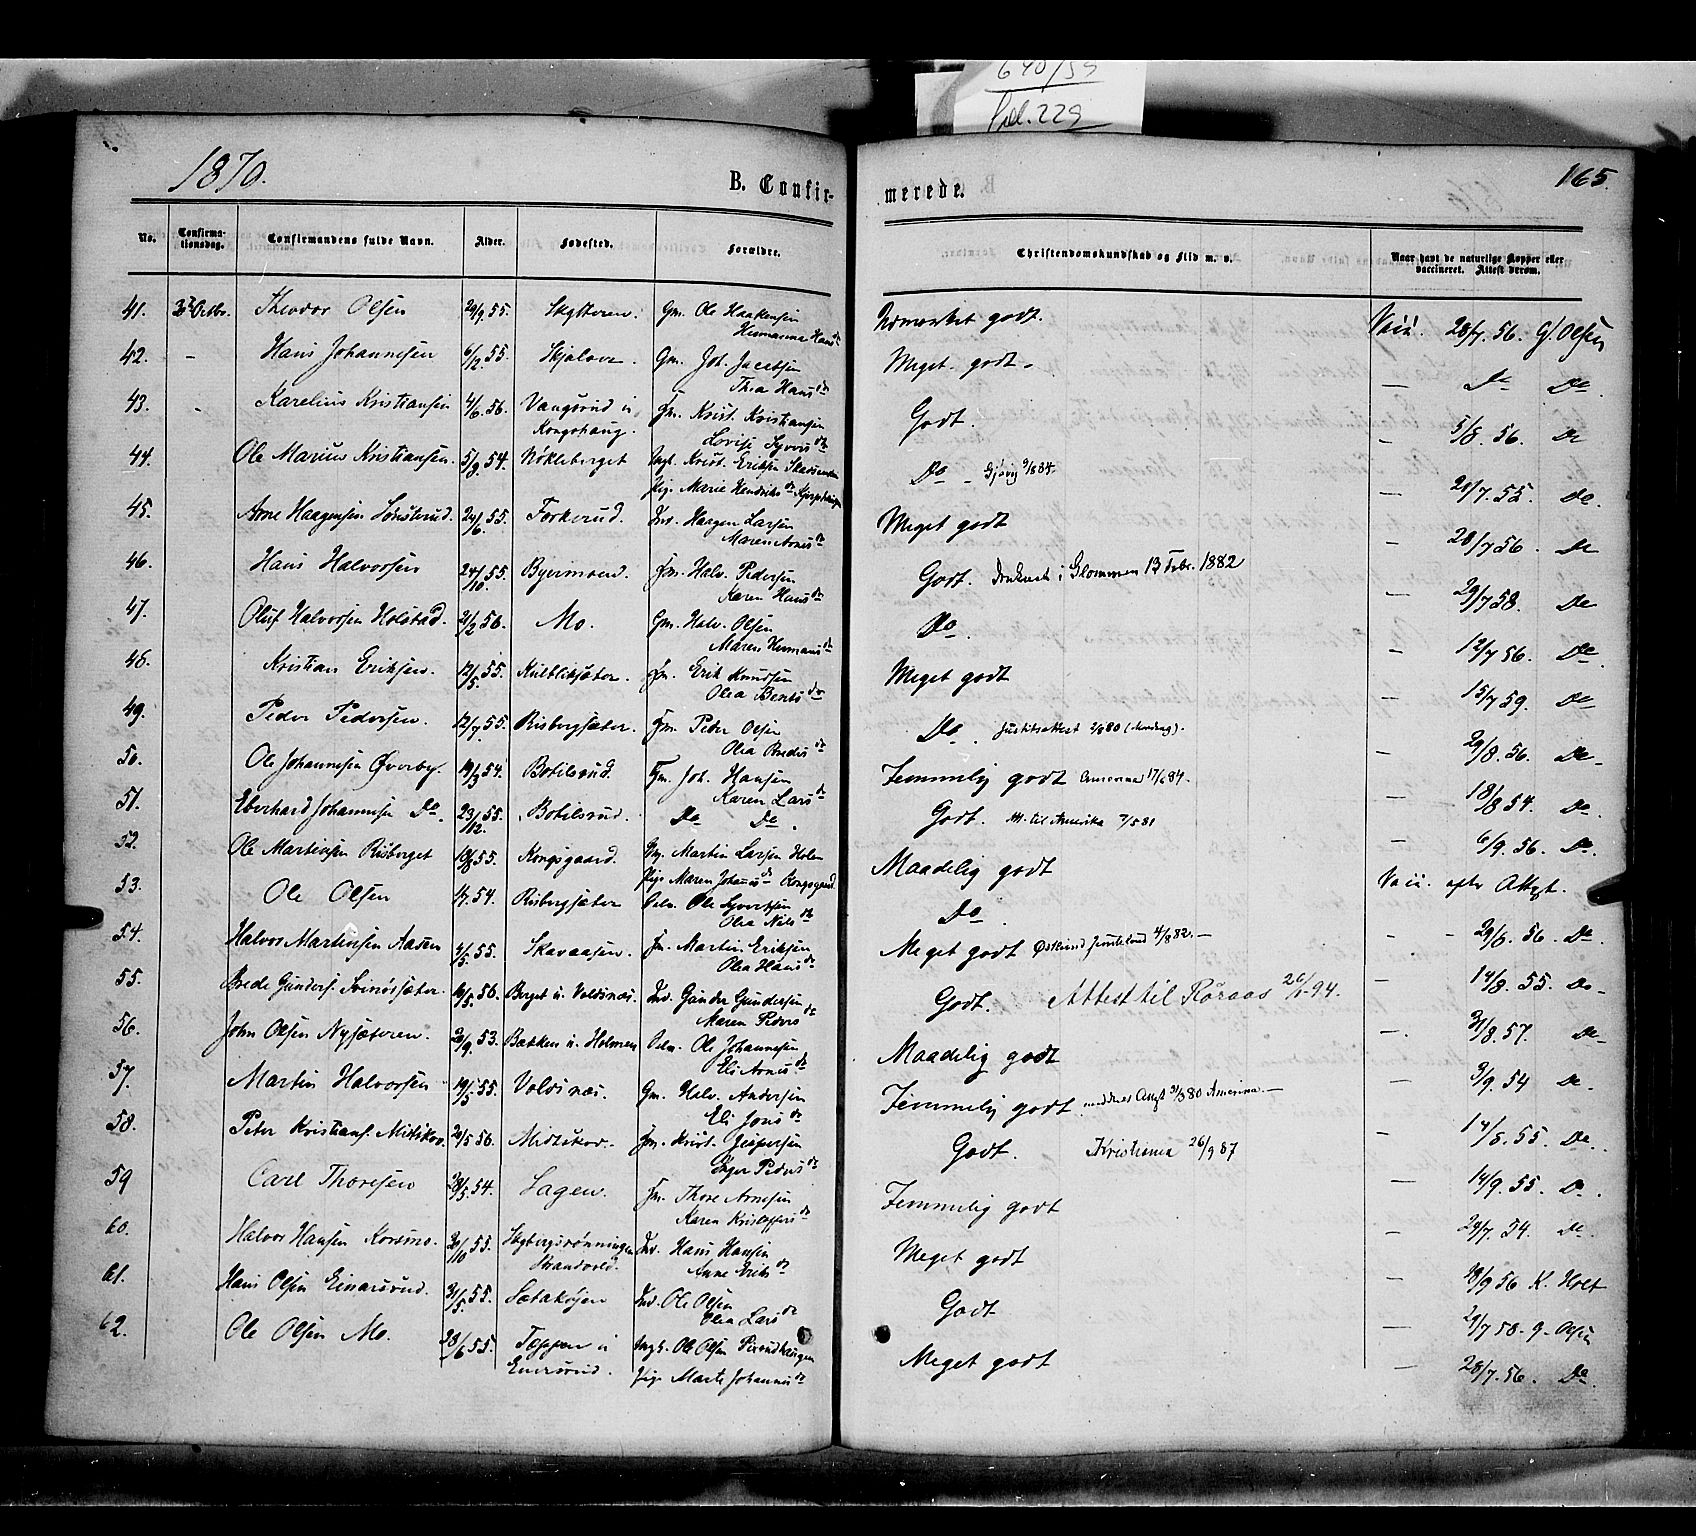 640/59
Pdl. 229
1870.
B. Confir-
merede.
165.
No.
Confirma-
tionsdag.
Confirmandens fulde Navn.
Alder.
Fødested.
Forældre.
Christendomskundskab og Flid m. v.
Naar havt de naturlige Kopper eller
vaccineret. Attest derom.
41. Octbr. Theodor Olsen 29/9 55. Gm. Ole Haakensen Udmærket godt. Vacc. 28/7. 56. G. Olsen
Hermana Hans dr
42. - Hans Johannesen 6/12 55. Skjolver Gm. Joh. Jacobsen Meget godt. — Do Do
Thea Hans dr
43. - Karelius Kristiansen 4/6 56. Vangsrud u Fm. Krist. Kristiansen Godt. - 5/8. 56. Do
Kongshaug. Lovise Syvers dr
44. Ole Marius Kristiansen. 5/9 54. Nøkleberget Ungk. Krist. Eriksen Do - Gjøvig 9/8 84. — 28/7. 55. Do
Pige Marie Hendriks dr
45. Arne Haagensen 24/6 55. Forkerud. Ind. Haagen Larsen Meget godt — 28/7 56. Do
Maren Arnes dr
46. Hans Halvorsen 24/10 55. Byermoend. Fm. Halv. Pedersen Godt. Druknede i Glommen 13 Febr. 1882 — 29/7 58. Do
Karen Hans dr
47. Oluf Halvorsen Holstad. 21/2 56. Mo. Gm. Halv. Olsen Do. - 12/7 56. Do
Maren Hermans dr
48. Kristian Eriksen. 12/5 55. Kulbliksæter. Fm. Erik Knudsen Meget godt - 15/7 59. Do
Olea Bents dr
49. Peder Pedersen. 12/7 55. Risbergsæter. Fm. Peter Olsen Do. 2/8 80 — 29/8. 56. Do
Olea Bredes dr
50. Ole Johannesen Øverby. 19/3 54. Botilsrud. Fm. Joh. Hansen Temmelig godt Amerika 17/6 84. — 18/8 54. Do
Karen Lars dr
51. Eberhard Johannesen Do. 23/12 55. Botilsrud. Do Do. Godt. Att. til Amerika 7/5 81 — 6/9. 56. Do
52. Ole Martinsen Risberget 55. Kongsgaard. Gm. Martin Larsen Holen Maadelig godt Vacc. efter Attest.
Pige Maren Johannes dr Kongsgaard.
53. Ole Olsen 54. Risbergsæter Ole Syvertsen Do. - - 29/6. 56. Do
Olea Nils dr
54. Halvor Martinsen Aasen 4/5 55. Skavaasen. Fm. Martin Eriksen Meget godt Østlund Jemtland 4/8 82. — — 14/8. 55. Do
Olea Hans dr
55. Brede Gunders. Svinossæter. 19/5 56. Berget u. Voldsnæs. Ind. Gunder Gundersen Godt. Attest til Røraas 26/1 94. — 31/8. 57. Do
Maren Peders dr
56. John Olsen Nysæteren. 20/9. 53. Bækken u. Holmen Ole Johannesen Maadelig godt — 3/9. 54 Do
Eli Arnes dr
57. Martin Halvorsen 19/5 55. Voldsnæs. Gm. Halv. Andersen Temmelig godt. meddelt Attest 31/3 80 Amerika. — — 14/5. 55. Do
Eli Jons dr
58. Peter Kristians. Midtskov. 20/5 56. Midtskov. Fm. Krist. Jespersen Godt. Kristiania 26/9 87 — 14/9. 55. Do
Inger Peders dr
59 Carl Thoresen 28/5 54. Sagen. Fm. Thore Arnesen Temmelig godt — 29/7. 54. Do
Karen Kristoffers dr
60. Halvor Hansen Korsmo. 20/10 55. Skybergsrønningen Ind. Hans Hansen Meget godt - 28/9 56 K. Holt
Strandvold. Anne Eriks dr
61. Hans Olsen Einarsrud. 31/5. 55. Sætakøjen Ind. Ole Olsen Godt — 29/7 58. G. Olsen
Olea Lars dr
62. Ole Olsen Mo. 28/6 55. Toppen u Ungk. Ole Olsen Meget godt — 28/7. 56. Do
Enersrud. Pige Marte Johannes dr